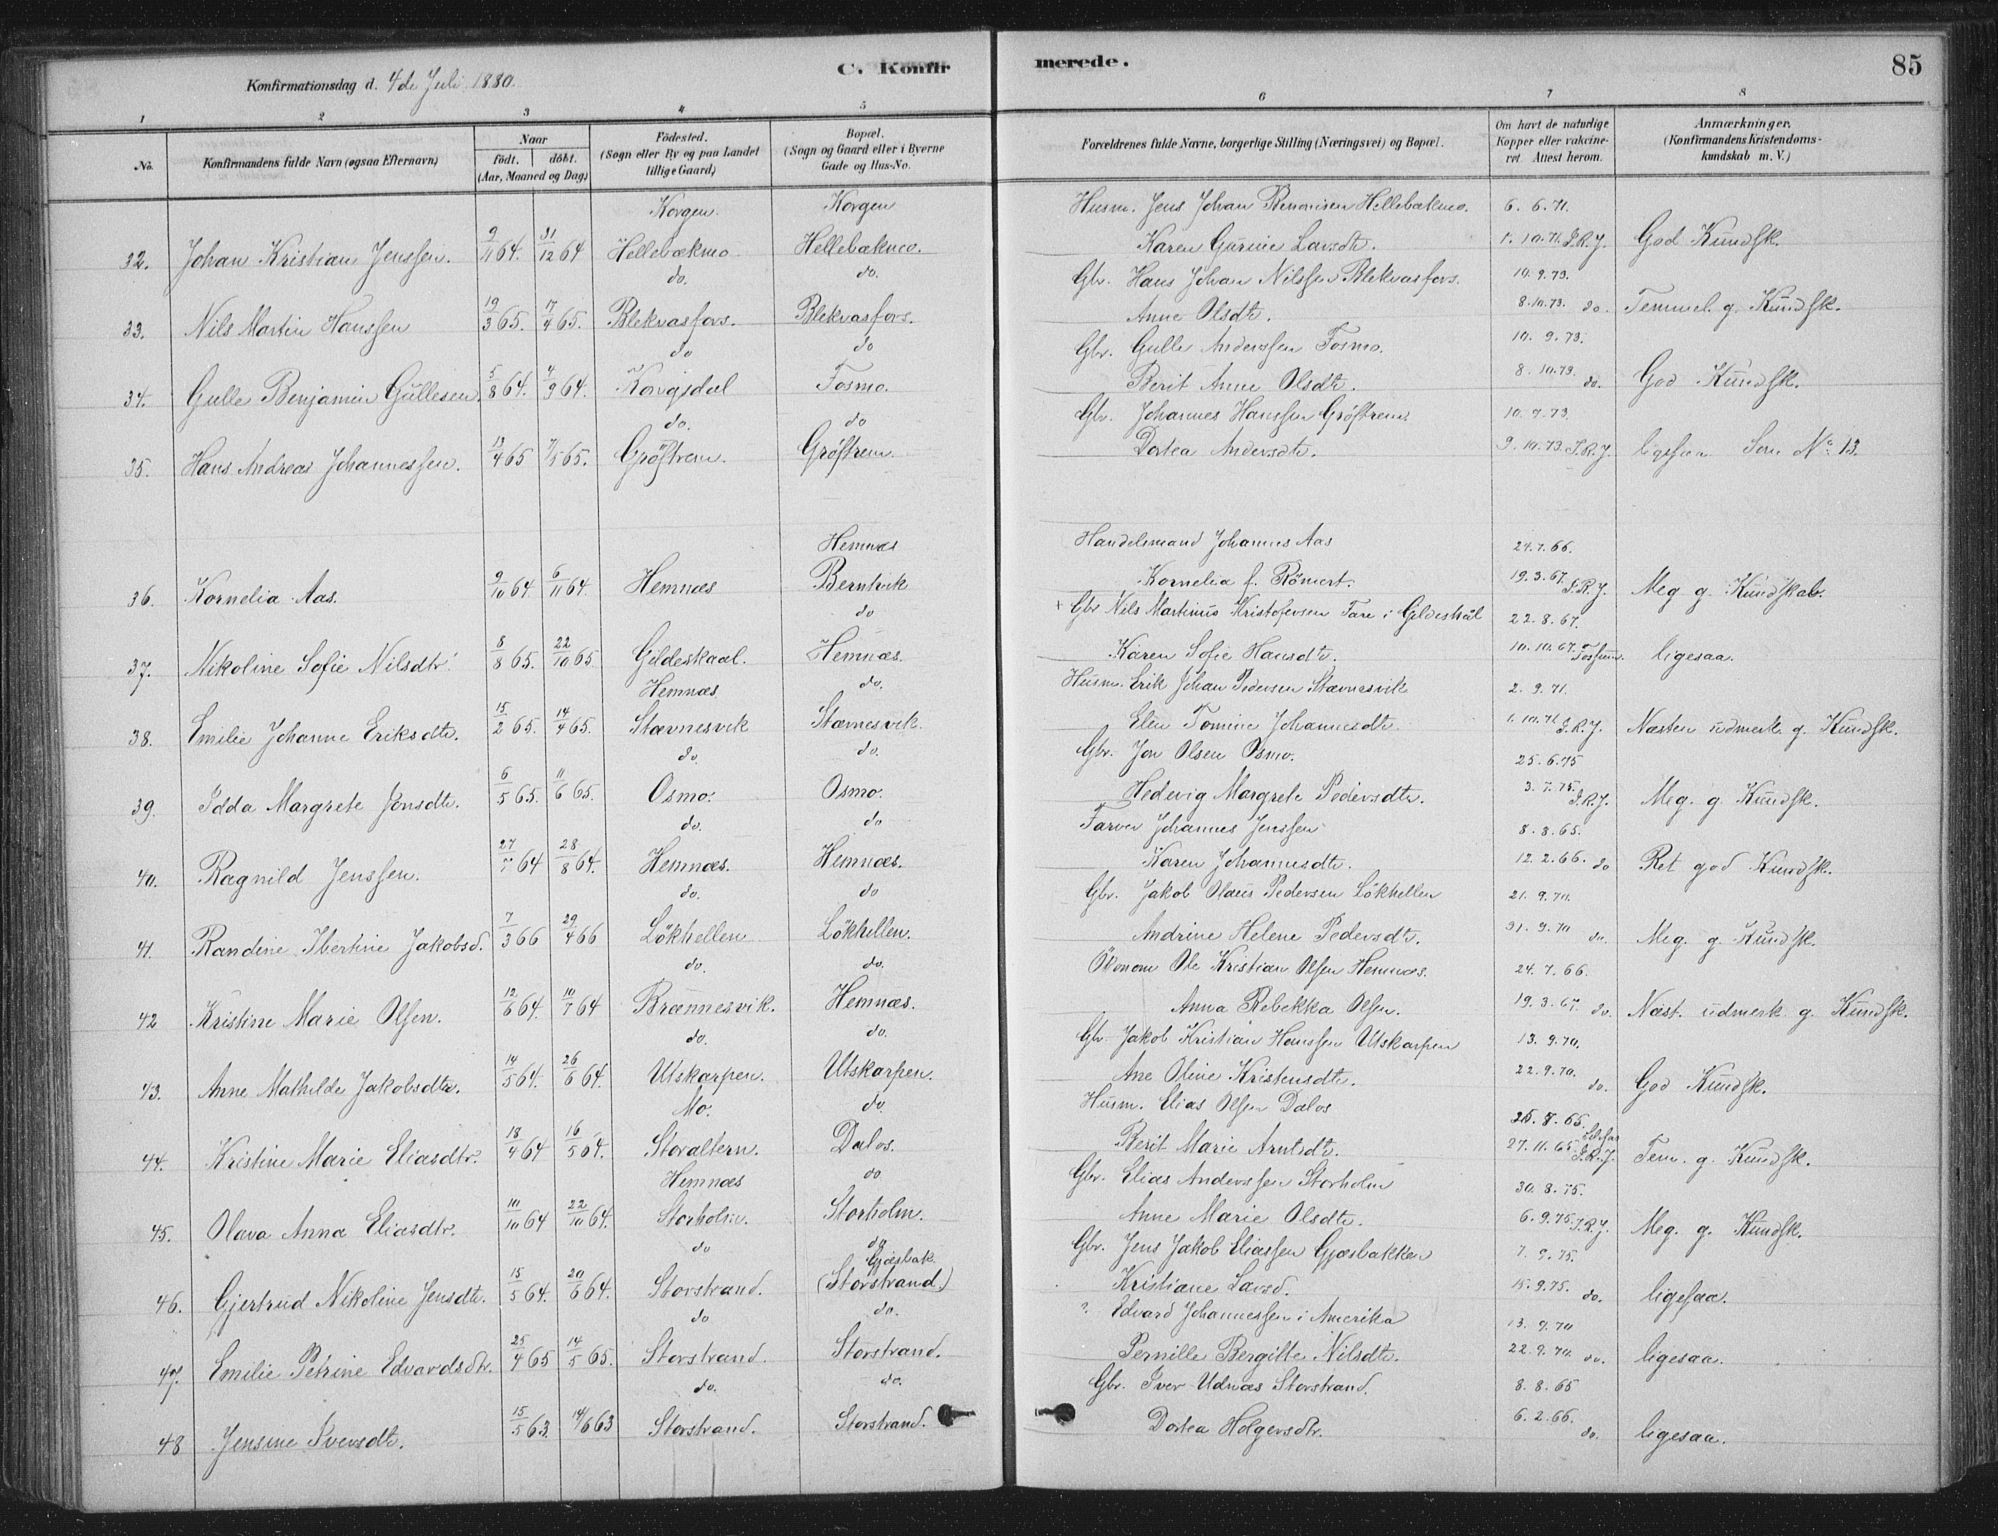 Konfirmationsdag d. 4de Juli 1880.
C. Konfirmerede.
85
1 2 3 4 5 6 7 8
No. Konfirmandens fulde Navn (ogsaa Efternavn) Naar födt. döbt. (Aar, Maaned og Dag) Födested. (Sogn eller By og paa Landet tillige Gaard) Bopæl. (Sogn og Gaard eller i Byerne Gade og Hus-No. Forældrenes fulde Navne, borgerlige Stilling (Næringsvei) og Bopæl. Om havt de naturlige Kopper eller vakcineret. Attest herom. Anmærkninger. (Konfirmandens Kristendomskundskab m. V.)
Korgen. Korgen Husm. Jens Johan Hellebækmo. 6.6.71.
32. Johan Kristian Jenssen. 9/11 64. 31/12 64 Hellebækmo Hellebækmo. Karen Gurine Larsdt. 1.10.71 J.R.J. God Kundsk.
do. do. Gbr. Hans Johan Nilssen Blekvasfors. 10.9.73.
33. Nils Martin Hanssen 19/3 65. 17/4 65. Blekvasfors. Blekvasfors. Anne Olsdtr. 8.10.73. do. Temmel. g. Kundsk.
do do Gbr. Gulle Anderssen Fosmo. 10.9.73.
34. Gulle Benjamin Gullesen. 5/8 64. 4/9 64. Korgsdal Fosmo. Berit Anne Olsdtr. 8.10.73. do. God Kundsk.
do. do Gbr. Johannes Hanssen Gröftrem. 10.9.73.
35. Hans Andreas Johannessen. 13/4 65 7/5 65. Gröftrem. Gröftrem. Dortea Andersdtr. 9.10.73. J.R.J. ligesaa Som No 13.
Hemnæs Handelsmand Johannes Aas 24.7.66.
36. Kornelia Aas. 9/10 64. 6/11 64. Hemnæs Berntvik Kornelia f. Römert. 19.3.67. J.R.J. Meg g. Kundskab.
do + Gbr. Nils Martinus Kristofersen Fare i Gildeskål 22.8.67.
37. Nikoline Sofie Nilsdtr. 8/8 65. 22/10 65 Gildeskaal. Hemnæs. Karen Sofie Hansdtr. 10.10.67. ligesaa.
Hemnæs. do. Husm. Erik Johan Pedersen Stævnesvik 2.9.71.
38. Emilie Johanne Eriksdtr. 15/2 65. 14/4 65. Stævnesvik Stævnesvik. Elen Tomine Johannesdtr. 1.10.71. J.R.J. Næsten udmerk. g. Kundsk.
do. do. Gbr. Jon Olsen Osmo. 25.6.75
39. Idda Margrete Jonsdtr. 6/5 65. 11/6 65. Osmo. Osmo. Hedevig Margrete Pedersdtr. 3.7.75. J.R.J. Meg. g. Kundsk.
do. do Farver Johannes Jenssen 8.8.65.
40. Ragnild Jenssen. 27/7 64 28/8 64. Hemnæs. Hemnæs. Karen Johannesdtr. 12.2.66. do Ret god Kundsk.
do. do Gbr. Jakob Olaus Pedersen Lökhellen 21.9.70.
41. Randine Ibertine Jakobsd. 7/3 66 29/4 66 Lökhellen Lökhellen. Andrine Helene Pedersdtr. 31.9.70 do. Meg. g. Kundsk.
do. do. Ökonom Ole Kristian Olsen Hemnæs. 24.7.66.
42 Kristine Marie Olsen. 12/6 64. 10/7 64 Brænnesvik. Hemnæs. Anna Rebekka Olsen. 19.3.67 do. Næst. udmerk g. Kundsk.
do. do. Gbr. Jakob Kristian Hanssen Utskarpen 13.9.70.
43. Anne Mathilde Jakobsdtr. 14/5 64. 26/6 64. Utskarpen. Utskarpen. Ane Oline Kristensdtr. 22.9.70. do. God Kundsk.
Mo. do. Husm. Elias Olsen Dalos 25.8.65.
44. Kristine Marie Eliasdtr. 18/4 64 16/5 64. Storaltern. Dalos. Berit Marie Arntsdtr. 27.11.65. J.R.J. Tem. g. Kundsk.
Hemnæs do Gbr. Elias Anderssen Storholm 30.8.75.
45. Olava Anna Eliasdtr. 10/10 64 22/10 64. Storholm. Storholm. Anne Marie Olsdtr. 6.9.75. J.R.J. Meg. g. Kundsk.
do do Gjæsbak Gbr. Jens Jakob Eliassen Gjæsbakken 7.9.75.
46. Gjertrud Nikoline Jensdtr. 15/5 64. 20/6 64. Storstrand. (Storstrand.) Kristiane Larsd. 15.9.75. do. ligesaa.
do do. ? Edvard Johannessen i Amerika 13.9.70
47. Emilie Petrine Edvardsdtr. 25/4 65 14/5 65. Storstrand. Storstrand. Pernille Bergitte Nilsdtr. 22.9.70. do. ligesaa.
do. do. Gbr. Iver Udnæs Storstrand. 8.8.65
48 Jensine Iversdtr. 15/5 63. 14/6 63 Storstrand. Storstrand. Dortea Holgersdtr. 6.2.66. do. ligesaa.